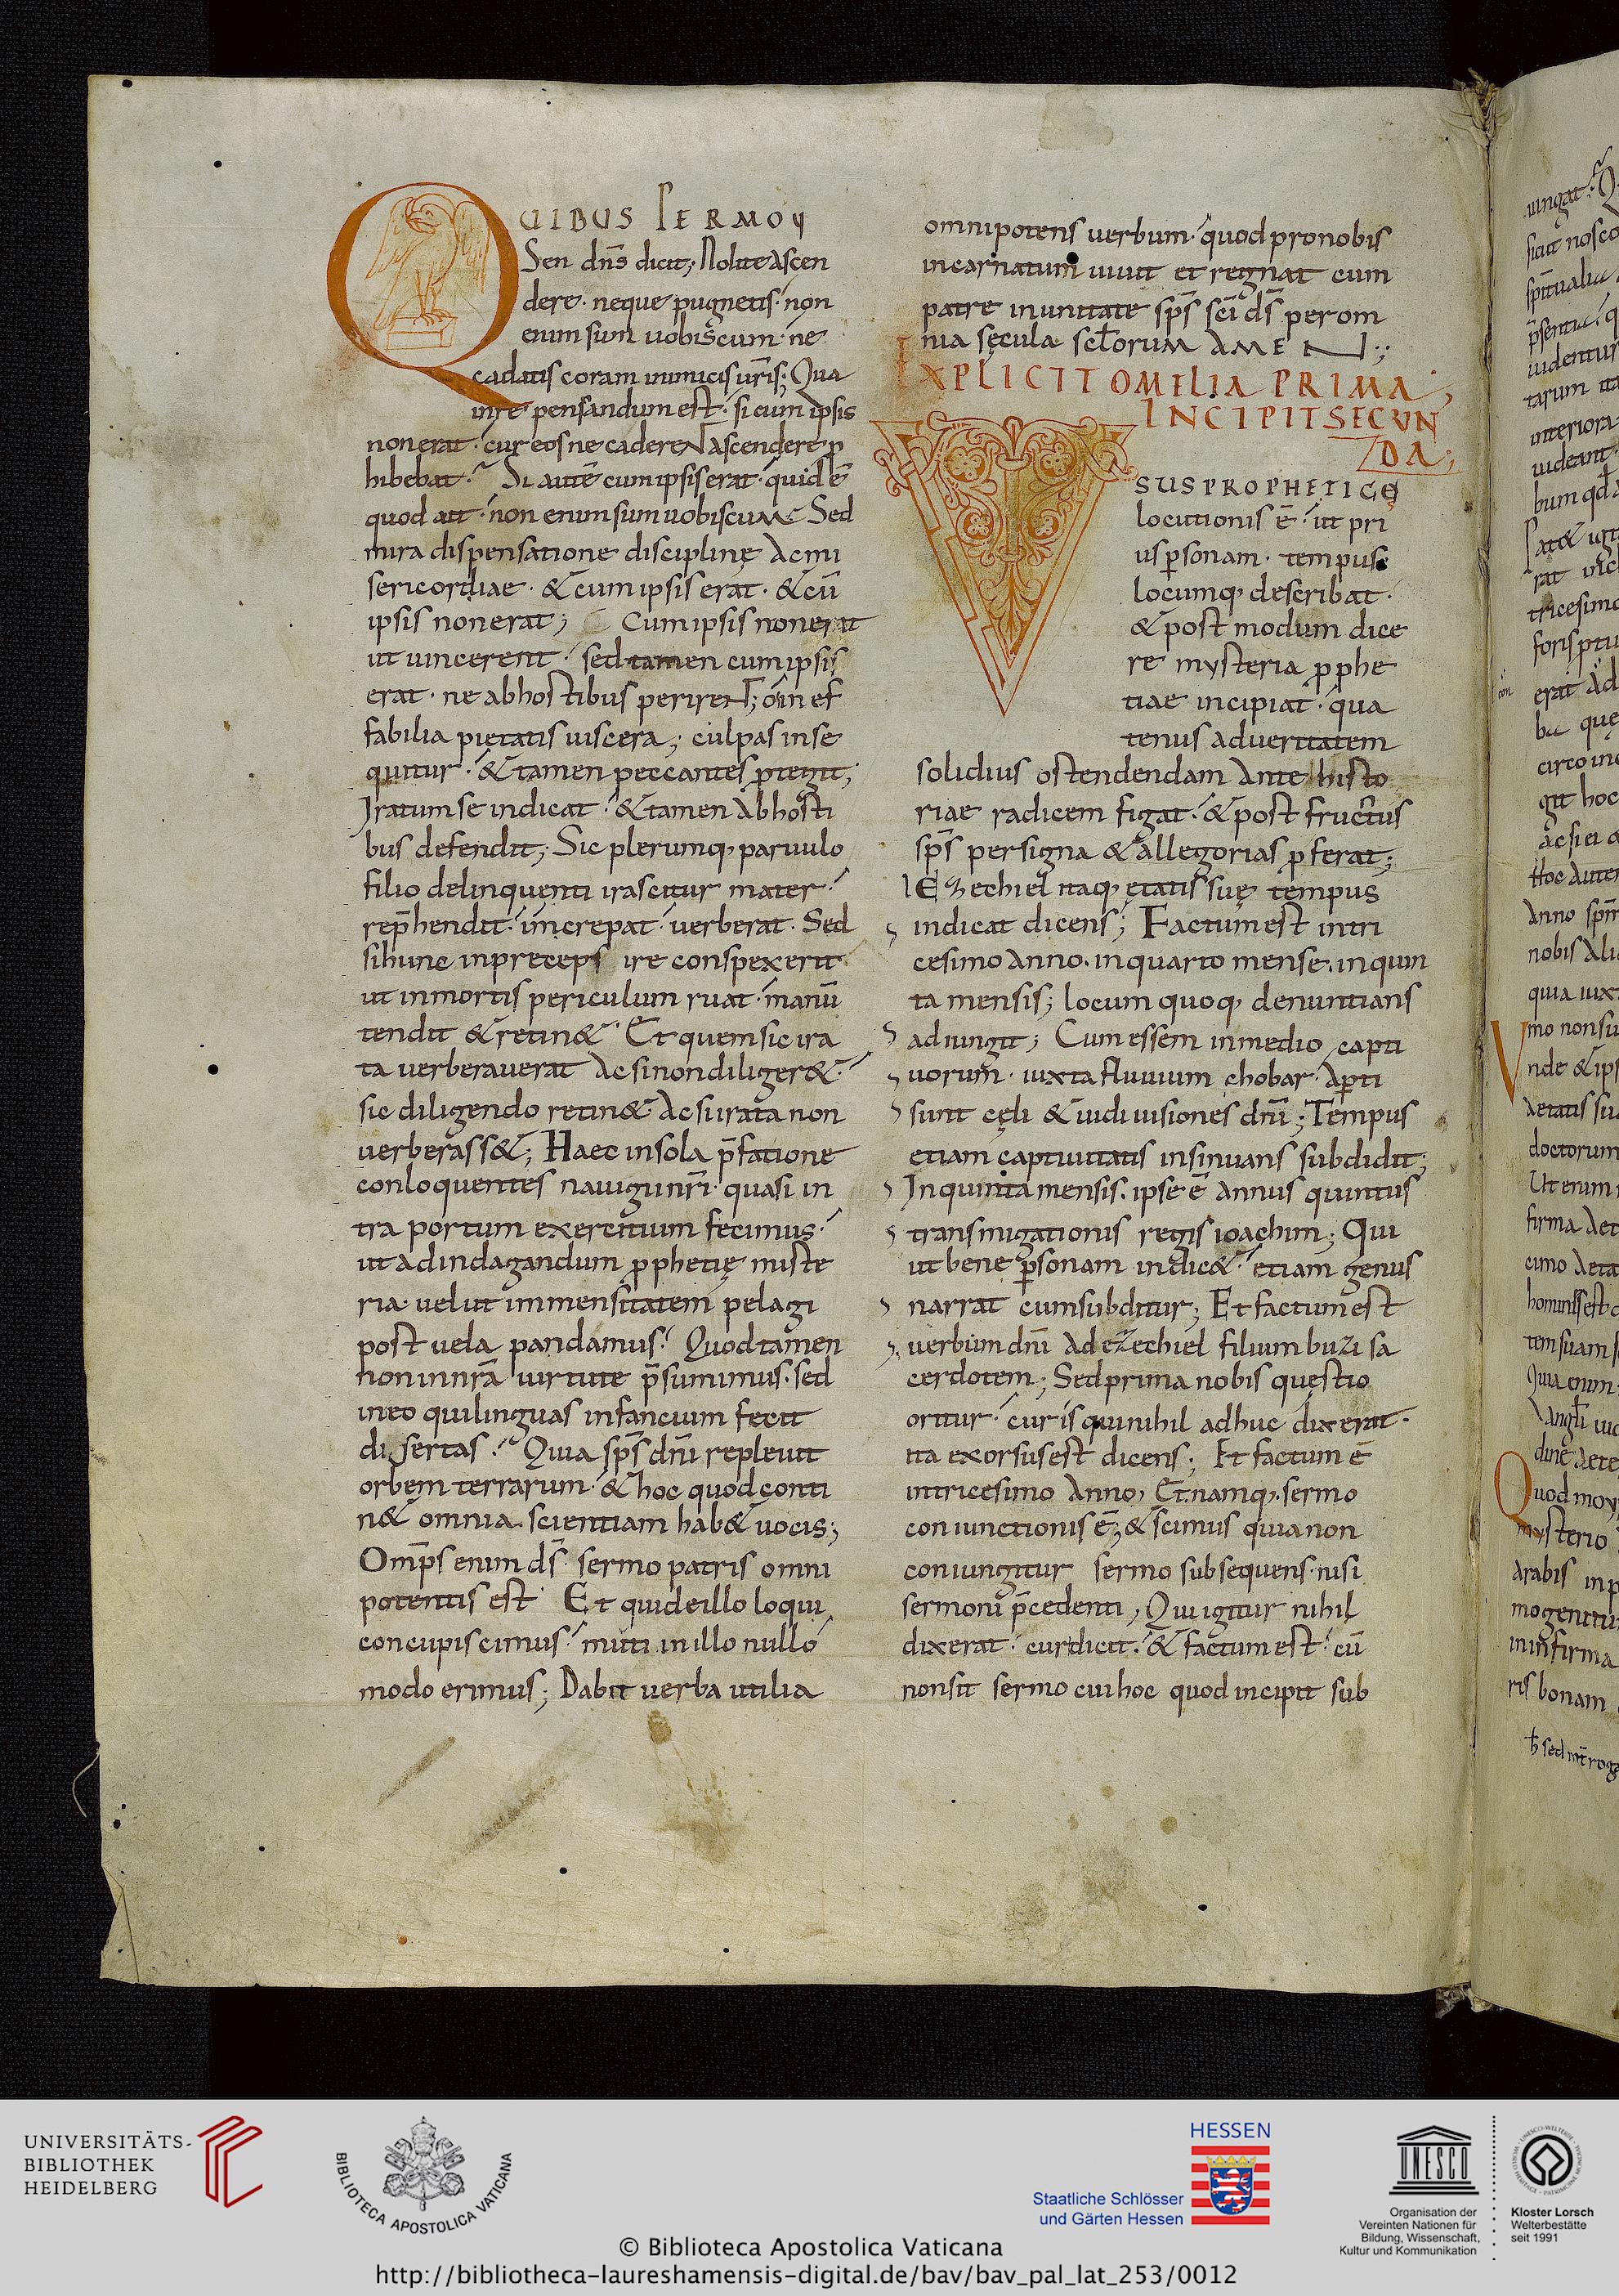 QUIBUS SERMOy
Sen dñs dicit; Nolite ascen
dere· neque pugnetis· non
enim sum uobiscum· ne
cadatis coram inimicis uris; Qua
inre pensandum est· si cum ipsis
non erat· cur eos ne caderent ascendere p
hibebat? Si autē cum ipsis erat· quid ē
quod ait· non enim sum uobiscum Sed
mira dispensatione disciplinę ac mi
sericordiae· & cum ipsis erat· & cū
ipsis non erat; Cum ipsis non erat
ut uincerent· sed tamen cum ipsis
erat· ne ab hostibus perirent; o inef
fabilia pietatis uiscera; culpas inse
quitur· & tamen peccantes ptegit;
Iratum se indicat· & tamen ab hosti
bus defendit; Sic plerumq; paruulo
filio delinquenti irascitur mater·
rephendit· increpat· uerberat· Sed
si hunc in preceps ire conspexerit
ut in mortis periculum ruat· manū
tendit & retin& Et quem sic ira
ta uerberauerat ac si non diliger&·
sic diligendo retin& ac si irata non
uerberass&; Haec in sola p̄fatione
conloquentes nauigii nr̄i· quasi in
tra portum exercitium fecimus·
ut ad indagandum pphetię miste
ria· uelut immensitatem pelagi
post uela pandamus· Quod tamen
non in nrā uirtute p̄sumimus· sed
in eo qui linguas infantium fecit
disertas· Quia sp̄s dn̄i repleuit
orbem terrarum· & hoc quod conti
n& omnia· scientiam hab& uocis;
Omp̄s enim ds̄ sermo patris omni
potentis est Et qui de illo loqui
concupiscimus· muti in illo nullo
modo erimus; Dabit uerba utilia
omnipotens uerbum· quod pro nobis
incarnatum uiuit et regnat cum
patre in unitate sp̄s sc̄i ds̄ per om
nia sęcula sclorum AMEN;
EXPLICIT OMILIA PRIMA;
INCIPIT SECUN
DA;
USUS PROPHETICĘ
locutionis ē· ut pri
us psonam· tempus
locumq; describat·
& post modum dice
re mysteria pphe
tiae incipiat· qua
tenus ad ueritatem
solidius ostendendam ante histo
riae radicem figat· & post fructus
sp̄s per signa & allegorias pferat;
IEzechiel itaq; ętatis suę tempus
indicat dicens; Factum est in tri
cesimo anno· in quarto mense· in quin
ta mensis; locum quoq; denuntians
adiungit; Cum essem in medio capti
uorum· iuxta fluuium chobar· apti
sunt cęli & uidi uisiones dn̄i; Tempus
etiam captiuitatis insinuans subdidit;
In quinta mensis· ipse ē annus quintus
transmigationis regis ioachim; Qui
ut bene psonam indic&· etiam genus
narrat cum subditur; Et factum est
uerbum dn̄i ad ezechiel filium buzi sa
cerdotem; Sed prima nobis questio
oritur· cur is qui nihil adhuc dixerat·
ita exorsus est dicens; Et factum ē
in tricesimo anno, Et namq; sermo
coniunctionis ē; & scimus quia non
coniungitur sermo subsequens· nisi
sermoni p̄cedenti, Qui igitur nihil
dixerat· cur dicit· & factum est· cū
non sit sermo cui hoc quod incipit sub
UNIVERSITÄTS-
BIBLIOTHEK
HEIDELBERG
BIBLIOTECA APOSTOLICA VATICANA
HESSEN
Staatliche Schlösser
und Gärten Hessen
UNESCO
Organisation der
Vereinten Nationen für
Bildung, Wissenschaft,
Kultur und Kommunikation
Kloster Lorsch
Welterbestätte
seit 1991
© Biblioteca Apostolica Vaticana
http://bibliotheca-laureshamensis-digital.de/bav/bav_pal_lat_253/0012